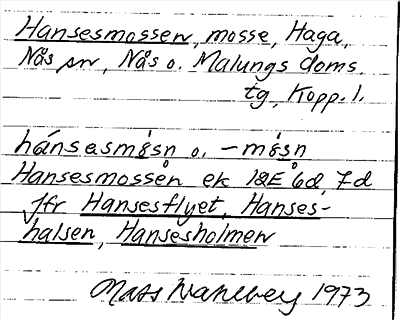 Hansesmossen, mosse, Haga,
Nås sn, Nås o. Malungs doms.
tg, Kopp. l.
hánsəsmǫ̀sn o. –mǫ̀sn
Hansesmossen ek 12E 6d, 7d
Jfr Hansesflyet, Hanses-
halsen, Hansesholmen
Mats Wahlberg 1973